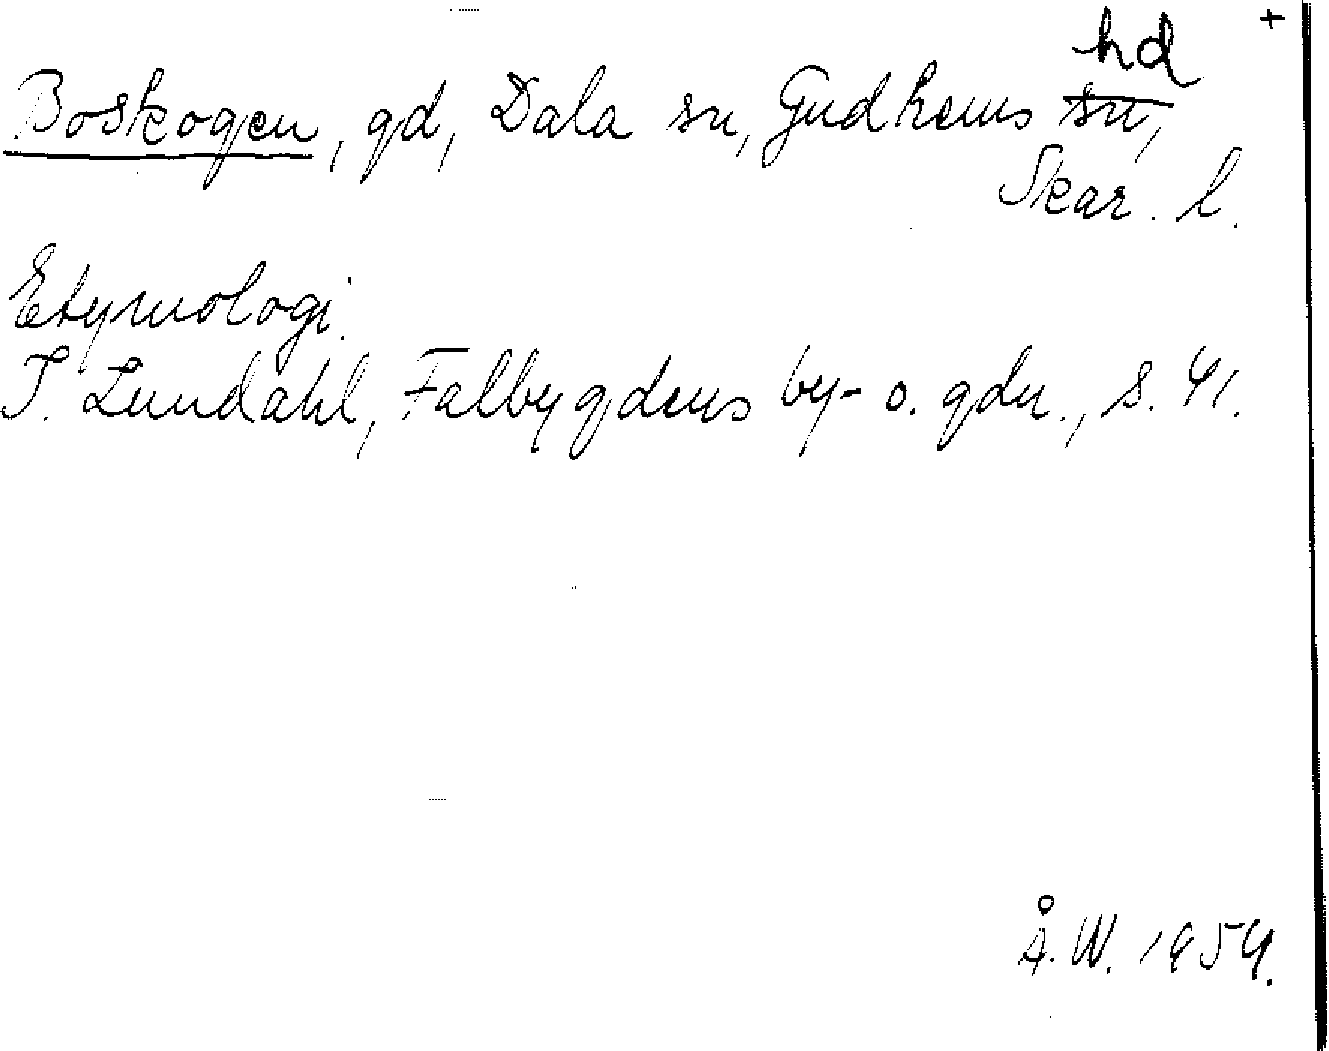 +
Boskogen, gd, Dala sn, Gudhems hd
sn,
Skar. l.
Etymologi.
I. Lundahl, Falbygdens by- o. gdn., s. 41.
Å.W. 1954.